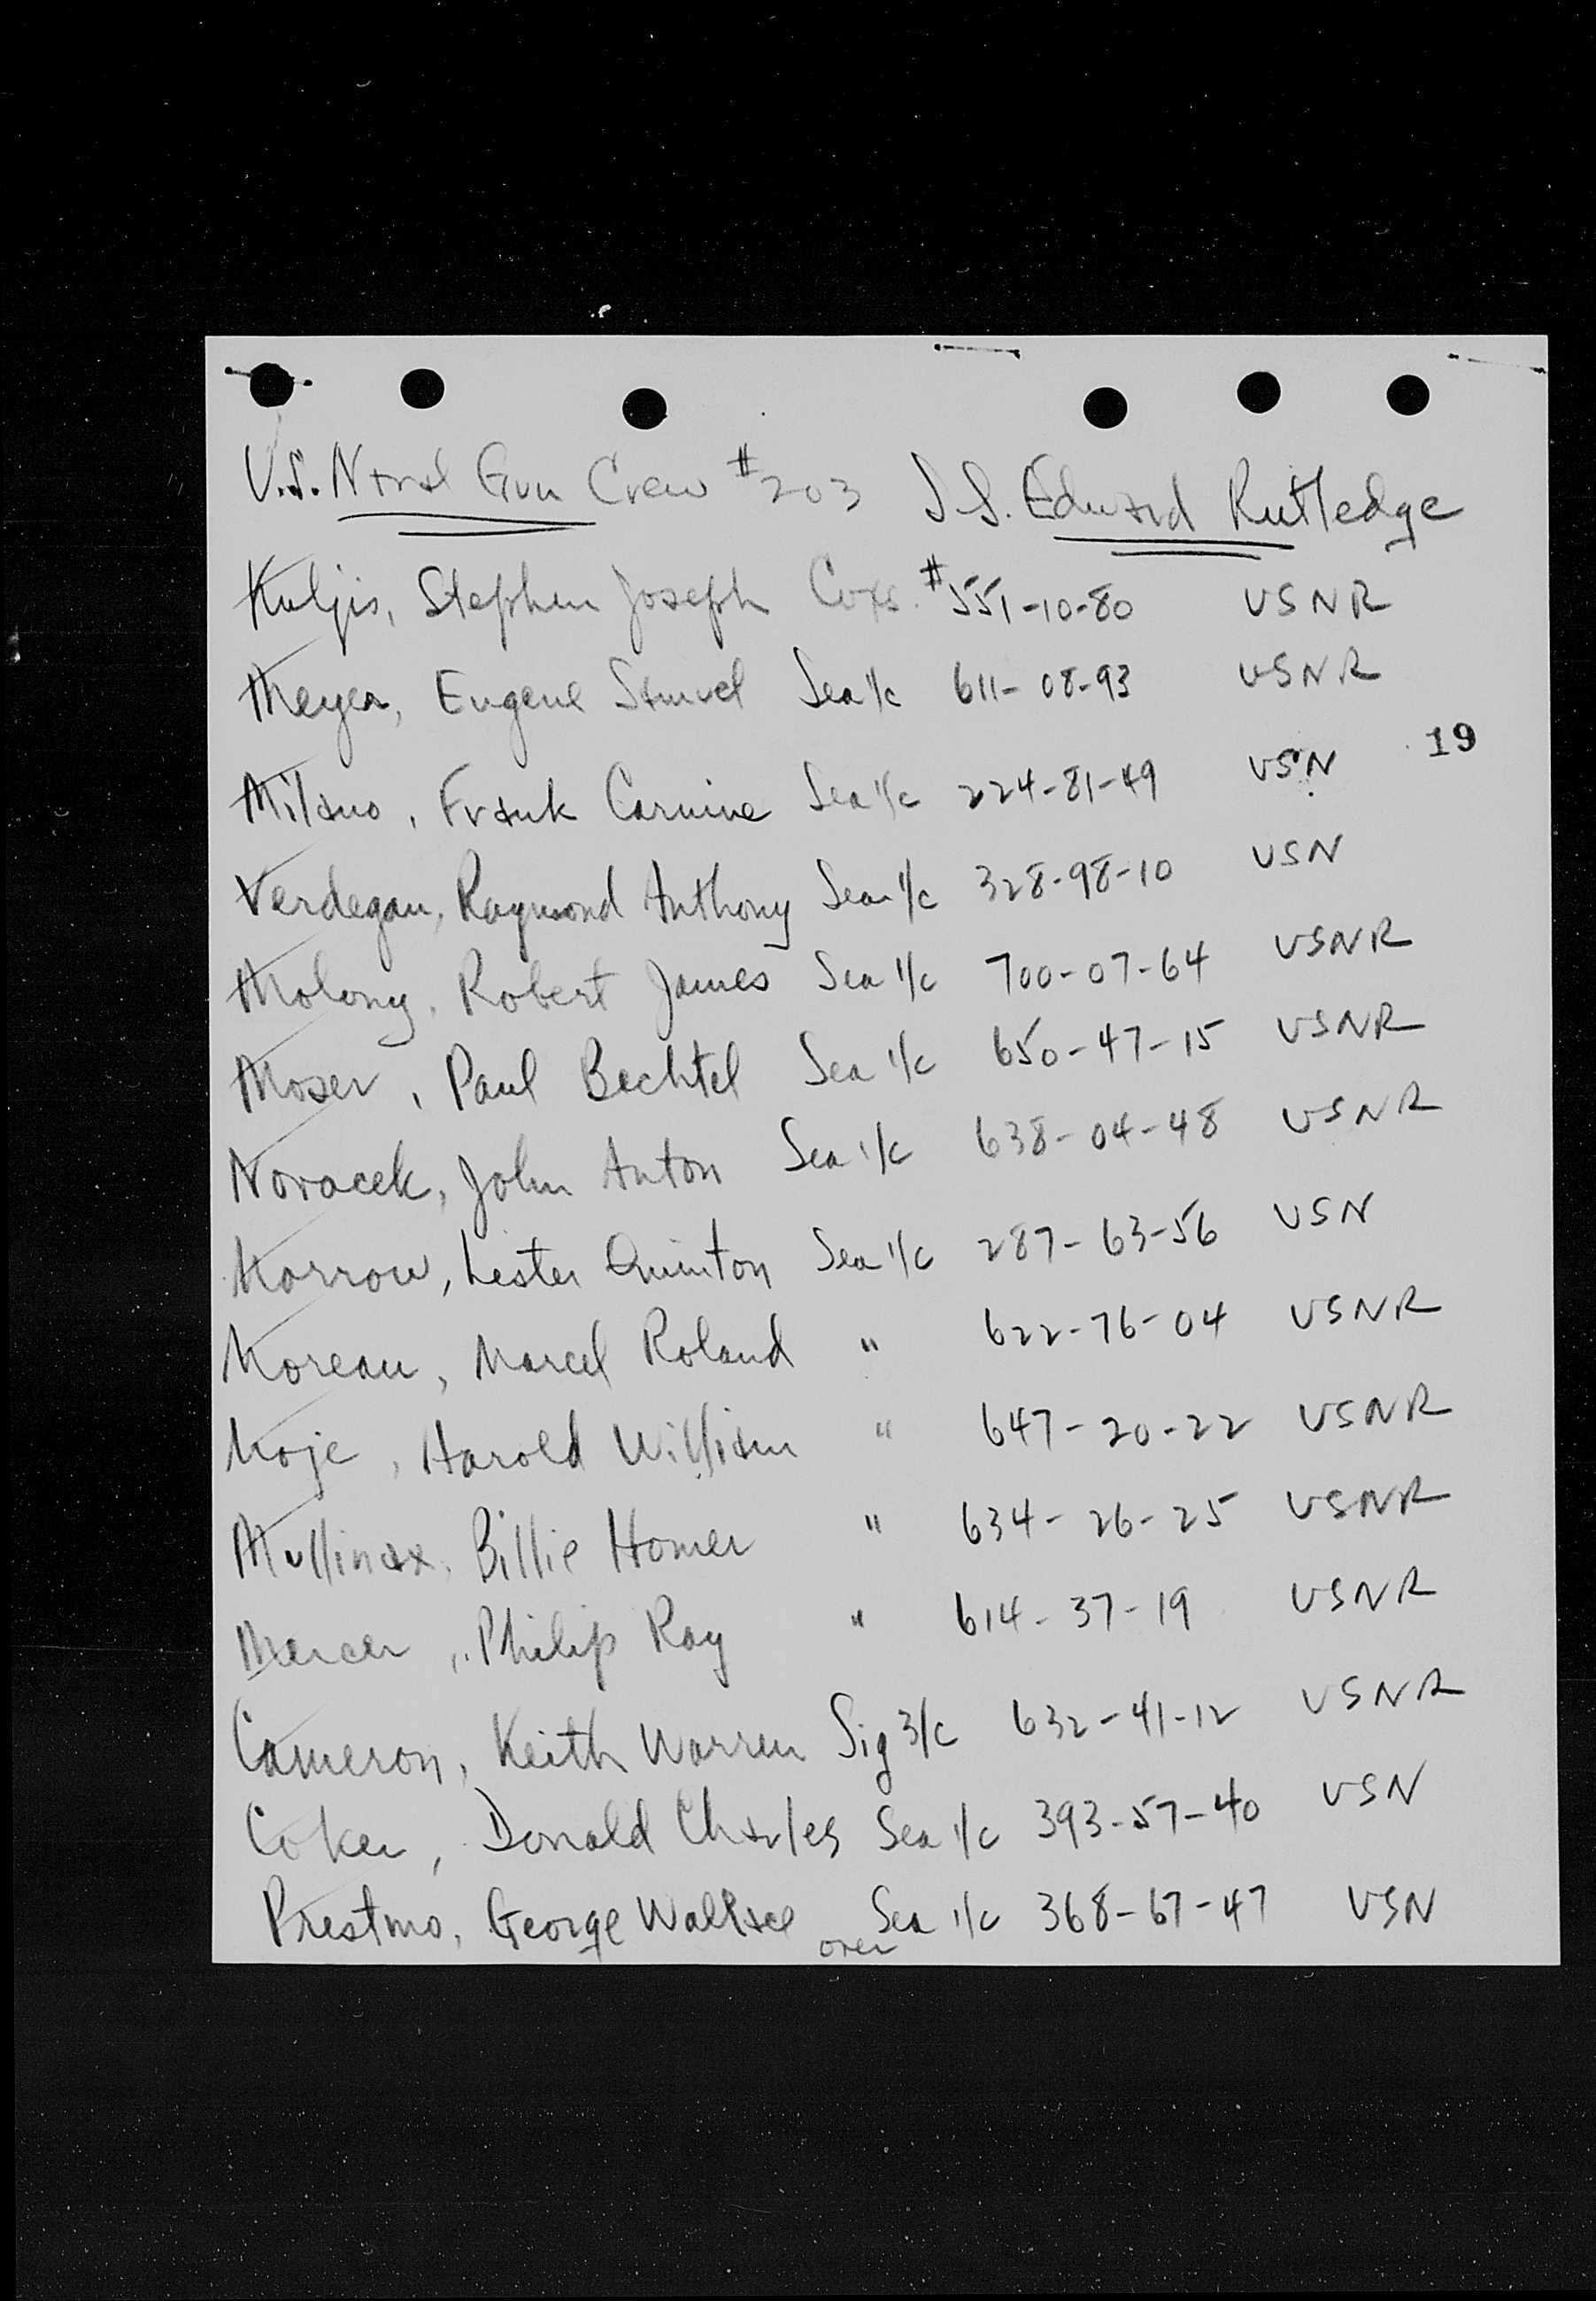 U.S. Naval Gun Crew #203 S.S. Edward Rutledge
Kuljis, Stephen Joseph Coxs. #551-10-80 USNR
Meyer, Eugene Samuel Sea 1/c 611-08-93 USNR
19
Milano, Frank Carmine Sea 1/c 224-81-49 USN
Verdegan, Raymond Anthony Sea 1/c 328-98-10 USN
Molony, Robert James Sea 1/c 700-07-64 USNR
Moser, Paul Bechtel Sea 1/c 650-47-15 USNR
Novacek, John Anton Sea 1/c 638-04-48 USNR
Morrow, Lester Quinton Sea 1/c 287-63-56 USN
Moreau, Marcel Roland " 622-76-04 USNR
Moje, Harold William " 647-20-22 USNR
Mullinax, Billie Homer " 634-26-25 USNR
Mercer, Philip Ray " 614-37-19 USNR
Cameron, Keith Warren Sig 3/c 632-41-12 USNR
Coker, Donald Charles Sea 1/c 393-57-40 USN
Prestmo, George Wallace Sea 1/c 368-67-47 USN
over